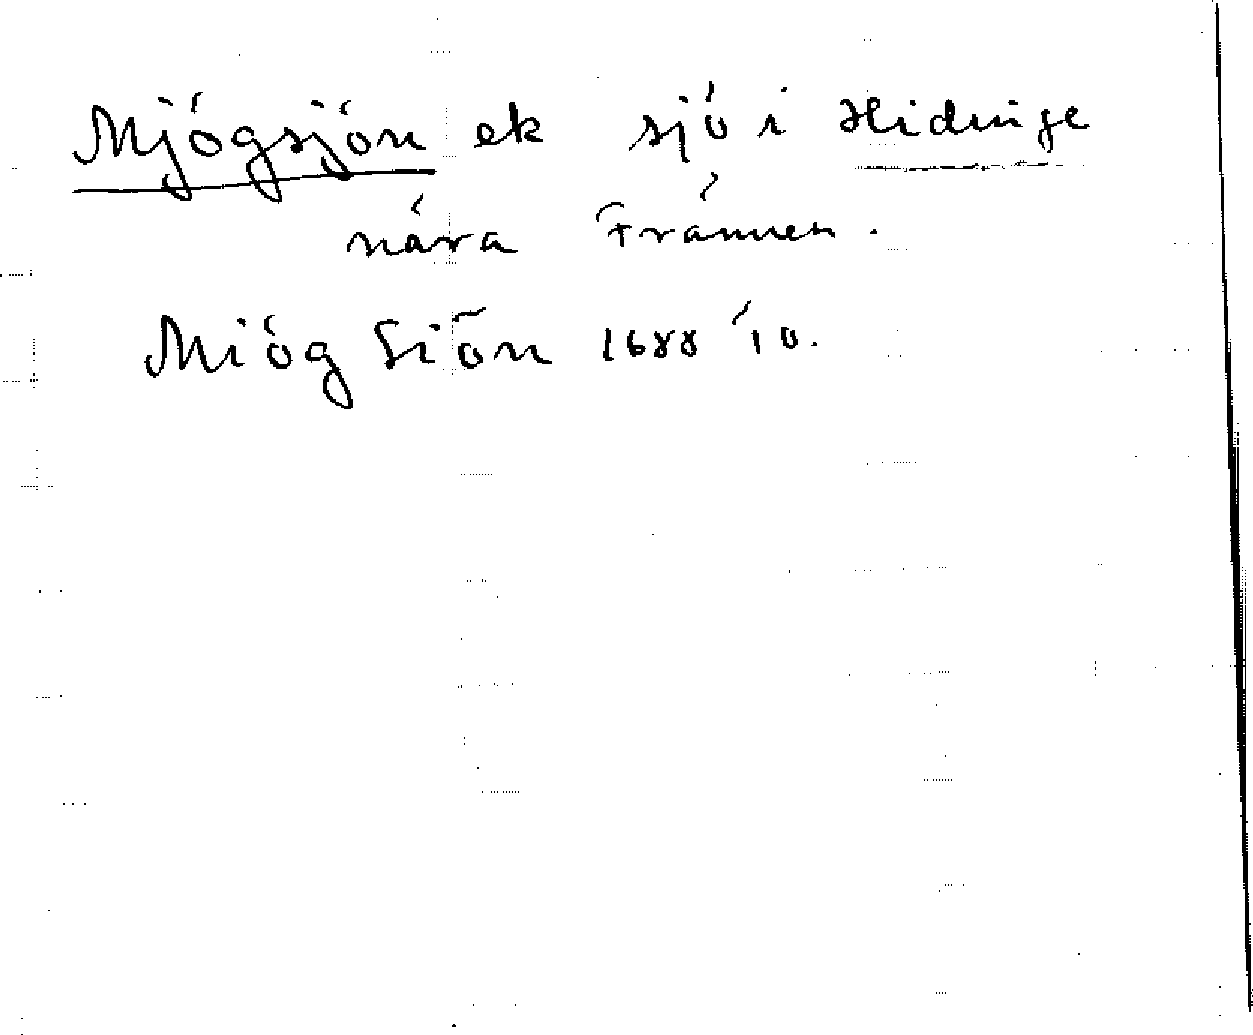 Mjögsjön ek sjö i Hidinge
nära Frännen.
Miög Siön 1688 10.